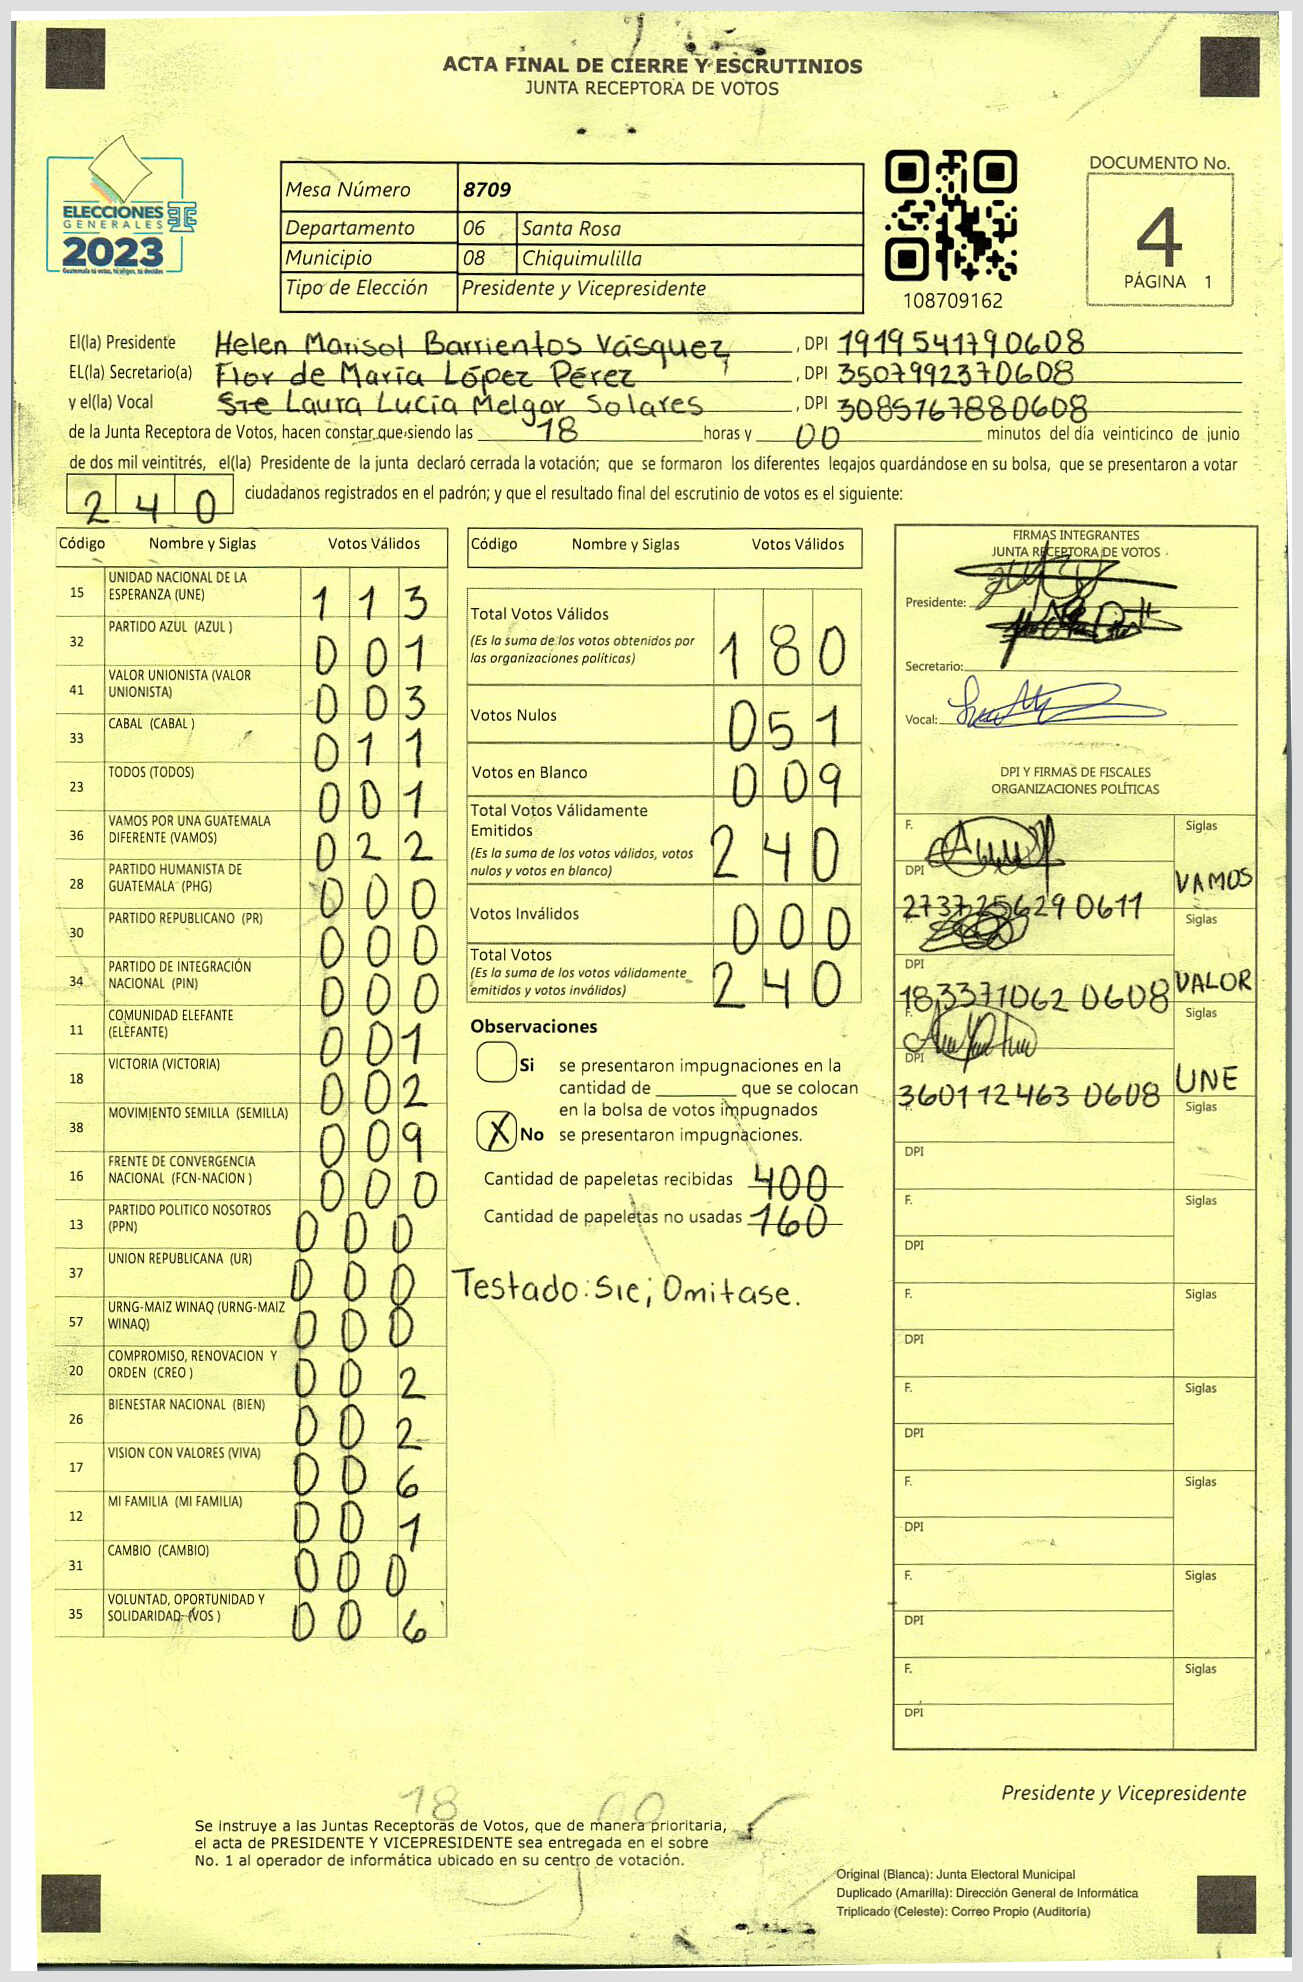 ACTA FINAL DE CIERRE Y ESCRUTINIOS
JUNTA RECEPTORA DE VOTOS
ELECCIONES
GENERALES
2023
Guatemala tú votas, tú eliges, tú decides
Mesa Número 8709
Departamento 06 Santa Rosa
Municipio 08 Chiquimulilla
Tipo de Elección Presidente y Vicepresidente
108709162
DOCUMENTO No.
4
PÁGINA 1
El(la) Presidente Helen Marisol Barrientos Vásquez, DPI 1919541790608
EL(la) Secretario(a) Flor de María López Pérez, DPI 3507992370608
y el(la) Vocal Sie Laura Lucía Melgar Solares, DPI 3085767880608
de la Junta Receptora de Votos, hacen constar que siendo las 18 horas y 00 minutos del día veinticinco de junio
de dos mil veintitrés, el(la) Presidente de la junta declaró cerrada la votación; que se formaron los diferentes legajos quardándose en su bolsa, que se presentaron a votar
240 ciudadanos registrados en el padrón; y que el resultado final del escrutinio de votos es el siguiente:
Código Nombre y Siglas Votos Válidos
15 UNIDAD NACIONAL DE LA ESPERANZA (UNE) 113
32 PARTIDO AZUL (AZUL ) 001
41 VALOR UNIONISTA (VALOR UNIONISTA) 003
33 CABAL (CABAL ) 011
23 TODOS (TODOS) 001
36 VAMOS POR UNA GUATEMALA DIFERENTE (VAMOS) 022
28 PARTIDO HUMANISTA DE GUATEMALA (PHG) 000
30 PARTIDO REPUBLICANO (PR) 000
34 PARTIDO DE INTEGRACIÓN NACIONAL (PIN) 000
11 COMUNIDAD ELEFANTE (ELEFANTE) 001
18 VICTORIA (VICTORIA) 002
38 MOVIMIENTO SEMILLA (SEMILLA) 009
16 FRENTE DE CONVERGENCIA NACIONAL (FCN-NACION ) 000
13 PARTIDO POLITICO NOSOTROS (PPN) 000
37 UNION REPUBLICANA (UR) 000
57 URNG-MAIZ WINAQ (URNG-MAIZ WINAQ) 000
20 COMPROMISO, RENOVACION Y ORDEN (CREO ) 002
26 BIENESTAR NACIONAL (BIEN) 002
17 VISION CON VALORES (VIVA) 006
12 MI FAMILIA (MI FAMILIA) 001
31 CAMBIO (CAMBIO) 000
35 VOLUNTAD, OPORTUNIDAD Y SOLIDARIDAD (VOS ) 006
Código Nombre y Siglas Votos Válidos
Total Votos Válidos 180
(Es la suma de los votos obtenidos por
las organizaciones políticas)
Votos Nulos 051
Votos en Blanco 009
Total Votos Válidamente
Emitidos 240
(Es la suma de los votos válidos, votos
nulos y votos en blanco)
Votos Inválidos 000
Total Votos 240
(Es la suma de los votos válidamente
emitidos y votos inválidos)
Observaciones
Si se presentaron impugnaciones en la
cantidad de ________ que se colocan
en la bolsa de votos impugnados
X No se presentaron impugnaciones.
Cantidad de papeletas recibidas 400
Cantidad de papeletas no usadas 160
Testado: Sie; Omitase.
FIRMAS INTEGRANTES
JUNTA RECEPTORA DE VOTOS
Presidente:
Secretario:
Vocal:
DPI Y FIRMAS DE FISCALES
ORGANIZACIONES POLÍTICAS
F. Siglas
DPI 2737256290611 VAMOS
F. Siglas
DPI 1833710620608 VALOR
F. Siglas
DPI 3601124630608 UNE
F. Siglas
DPI
F. Siglas
DPI
F. Siglas
DPI
F. Siglas
DPI
F. Siglas
DPI
F. Siglas
DPI
F. Siglas
DPI
Presidente y Vicepresidente
18 00
Se instruye a las Juntas Receptoras de Votos, que de manera prioritaria,
el acta de PRESIDENTE Y VICEPRESIDENTE sea entregada en el sobre
No. 1 al operador de informática ubicado en su centro de votación.
Original (Blanca): Junta Electoral Municipal
Duplicado (Amarilla): Dirección General de Informática
Triplicado (Celeste): Correo Propio (Auditoría)